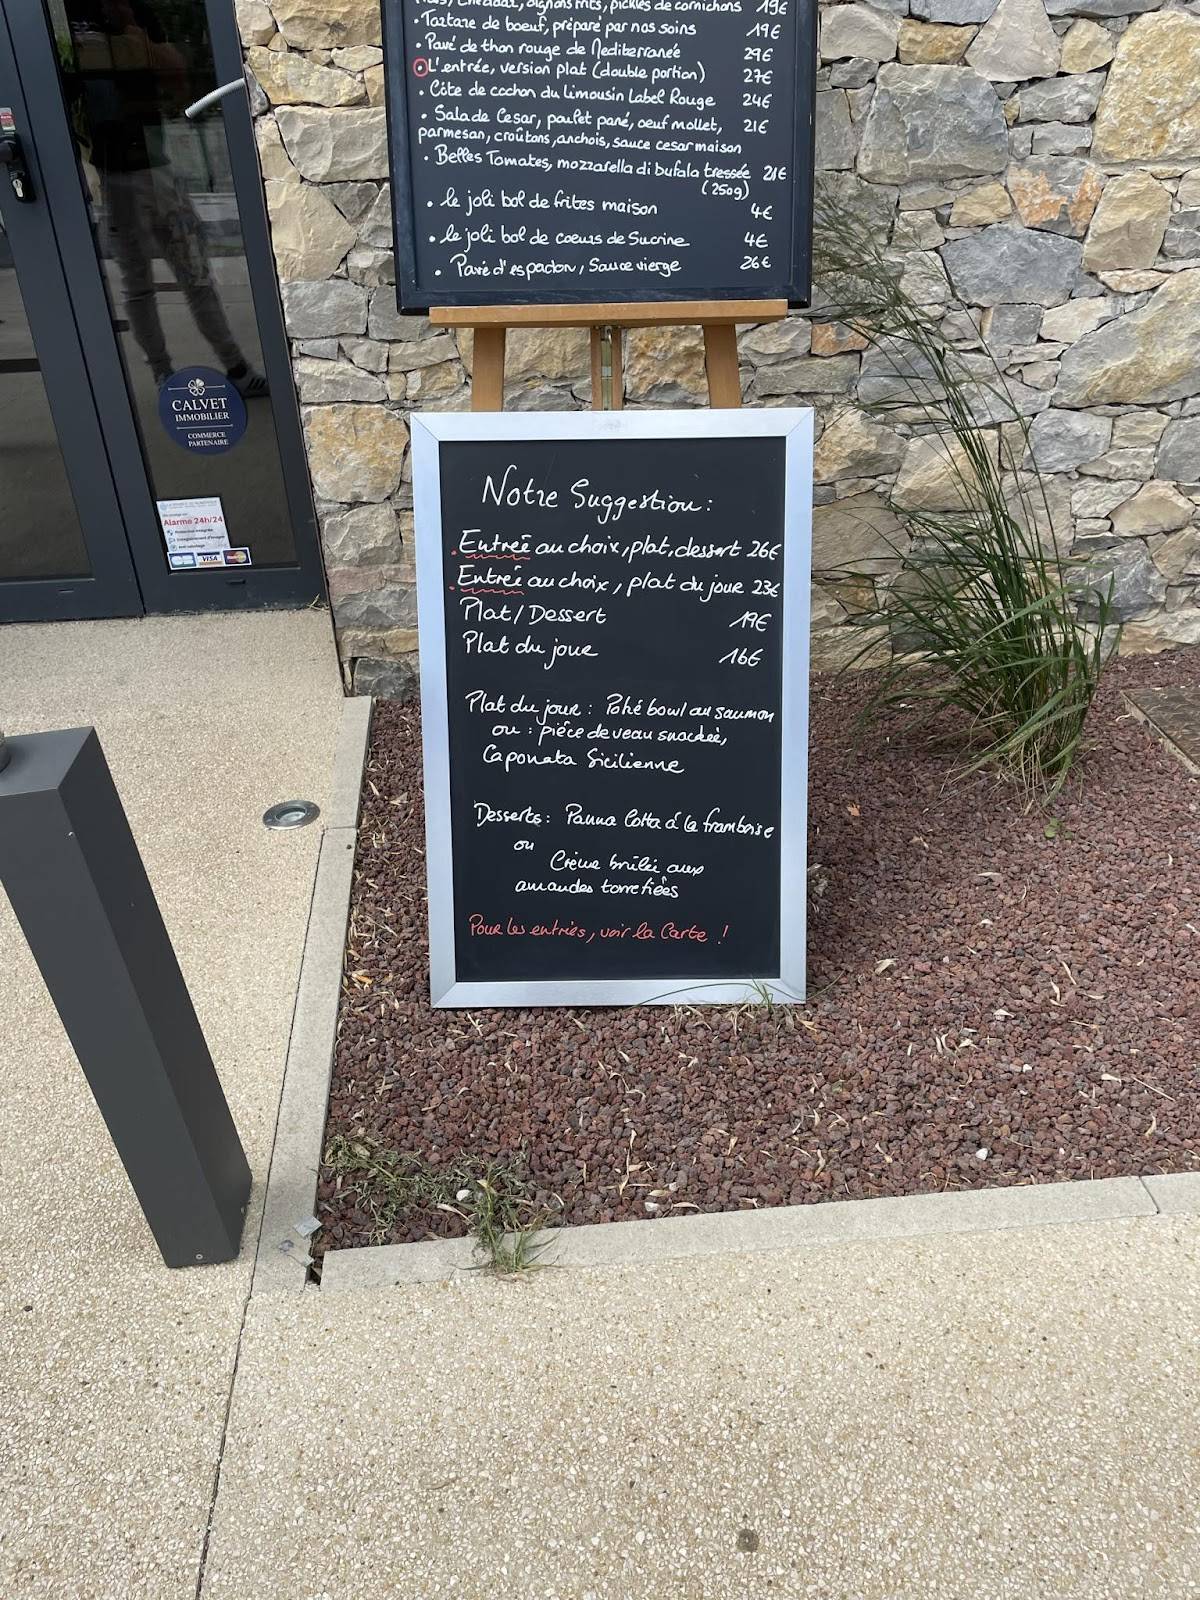 Maïs, Cheddar, oignons frits, pickles de cornichons 19€
• Tartare de boeuf, préparé par nos soins 19€
• Pavé de thon rouge de Mediterranée 29€
• L'entrée, version plat (double portion) 27€
• Côte de cochon du Limousin Label Rouge 24€
• Salade Cesar, poulet pané, oeuf mollet, 21€
parmesan, croûtons, anchois, sauce cesar maison
• Belles Tomates, mozzarella di bufala tressée 21€
(250g)
• le joli bol de frites maison 4€
• le joli bol de coeurs de Sucrine 4€
• Pavé d'espadon, Sauce vierge 26€
CALVET
IMMOBILIER
COMMERCE
PARTENAIRE
Alarme 24h/24
VISA
Notre Suggestion :
. Entrée au choix, plat, dessert 26€
. Entrée au choix, plat du jour 23€
Plat / Dessert 19€
Plat du jour 16€
Plat du jour : Poké bowl au saumon
ou : pièce de veau snackée,
Caponata Sicilienne
Desserts : Panna Cotta à la framboise
ou
Crème brûlée aux
amandes torrefiées
Pour les entrées, voir la Carte !